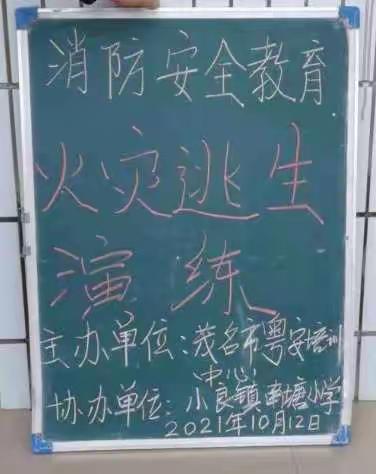 消防安全教育
火灾逃生
演练
主办单位:茂名市粤安培训
中心
协办单位:小良镇南塘小学
2021年10月12日